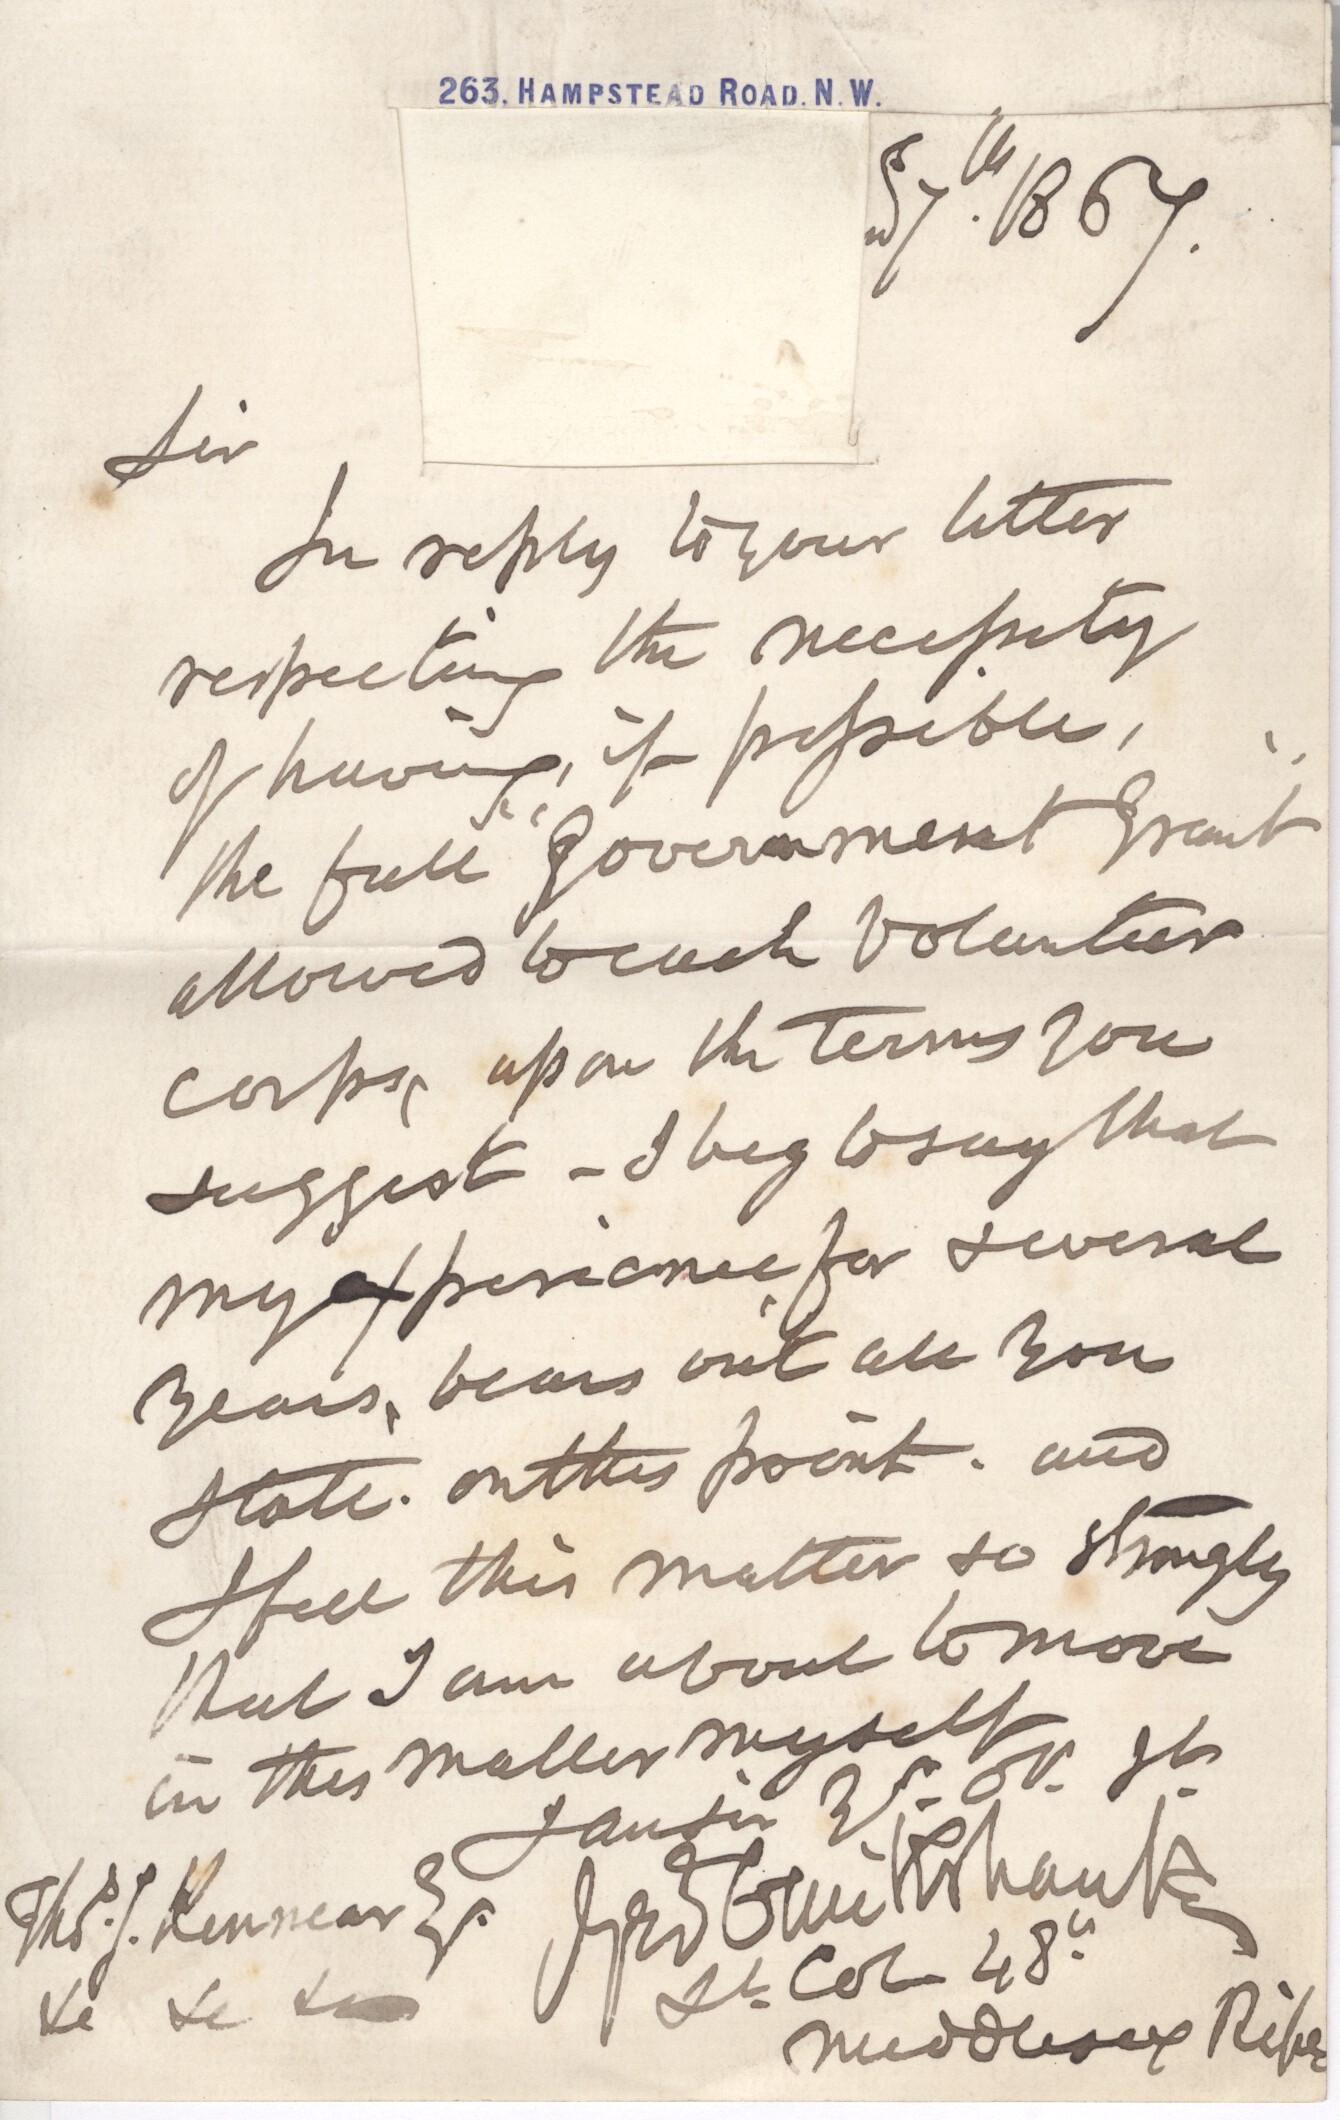 263, HAMPSTEAD ROAD. N. W.
7th. 1867.
Sir
In reply to your letter
respecting the necessity
of having, if possible,
the full "Government Grant"
allowed to each Volunteer
corps, upon the terms you
suggest – I beg to say that
my experience, for several
years, bears out all you
state. on this point. and
I feel this matter so strongly
that I am about to move
in this matter myself
I am Sir Yr. ob. St.
Thos. J. Kennear Esqr. George Cruikshank
&c &c &c Lt. Col 48th
Middlesex Rifle